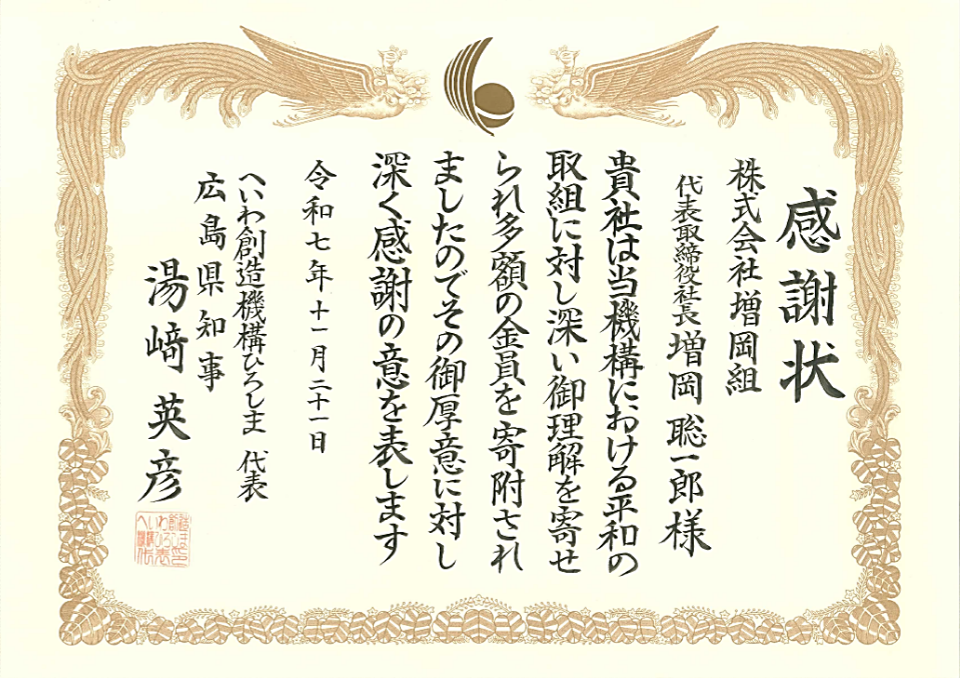 感謝状
株式会社増岡組
代表取締役社長増岡聡一郎様
貴社は当機構における平和の
取組に対し深い御理解を寄せ
られ多額の金員を寄附され
ましたのでその御厚意に対し
深く感謝の意を表します
令和七年十一月二十一日
へいわ創造機構ひろしま 代表
広島県知事
湯﨑英彦